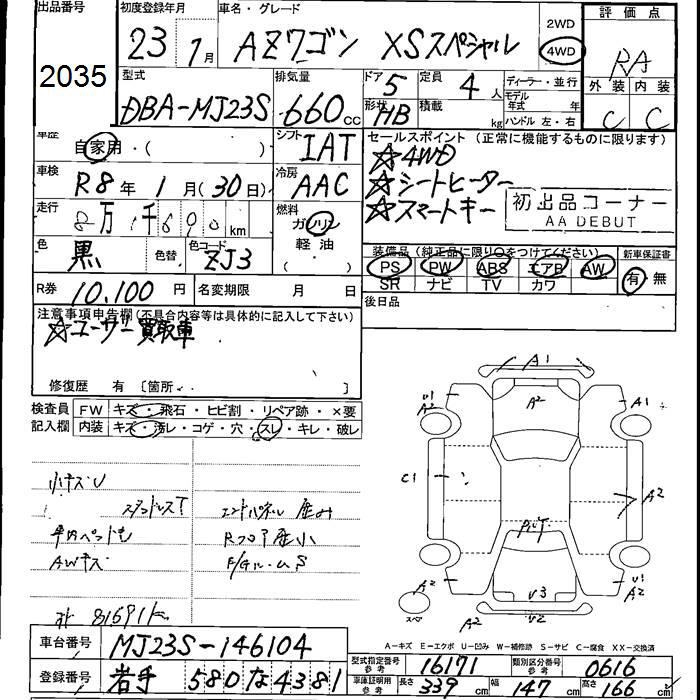 出品番号
2035
初度登録年月
23 1月
車名・グレード
AZワゴン XSスペシャル
2WD
4WD
評価点
RA
外装 内装
C C
型式
DBA-MJ23S
排気量
660cc
ドア 5
形状 HB
定員 4人
積載 kg
ディーラー・並行
モデル年式 年式
ハンドル 左・右
車歴
自家用・( )
シフト IAT
車検
R8年 1月(30日)
冷房 AAC
走行
8万1千690km
燃料
ガソリン
軽油
( )
色
黒
色替
色コード
ZJ3
セールスポイント(正常に機能するものに限ります)
☆4WD
☆シートヒーター
☆スマートキー
初出品コーナー
AA DEBUT
装備品(純正品に限り○をつけてください)
PS PW ABS エアB AW
SR ナビ TV カワ
新車保証書
有・無
R券 10,100円
名変期限 月 日
後日品
注意事項申告欄(不具合内容等は具体的に記入して下さい)
☆ユーザー買取車
修復歴 有 [箇所 ]
検査員記入欄
FW キズ・飛石・ヒビ割・リペア跡・×要
内装 キズ・汚レ・コゲ・穴・スレ・キレ・破レ
小キズU
スタッドレスT
AWキズ
エンドパネル 歪み
Rフロア歪小
A1
A2
U1
A2
A1
C1
A2
A2
V3
U2
U1
A2
スペア
A-キズ E-エクボ U-凹み W-補修跡 S-サビ C-腐食 XX-交換済
車台番号 MJ23S-146104
登録番号 岩手 580な4381
型式指定番号 参考 16171
類別区分番号 参考 0616
車庫証明用 参考 長さ 339cm 幅 147cm 高さ 166cm